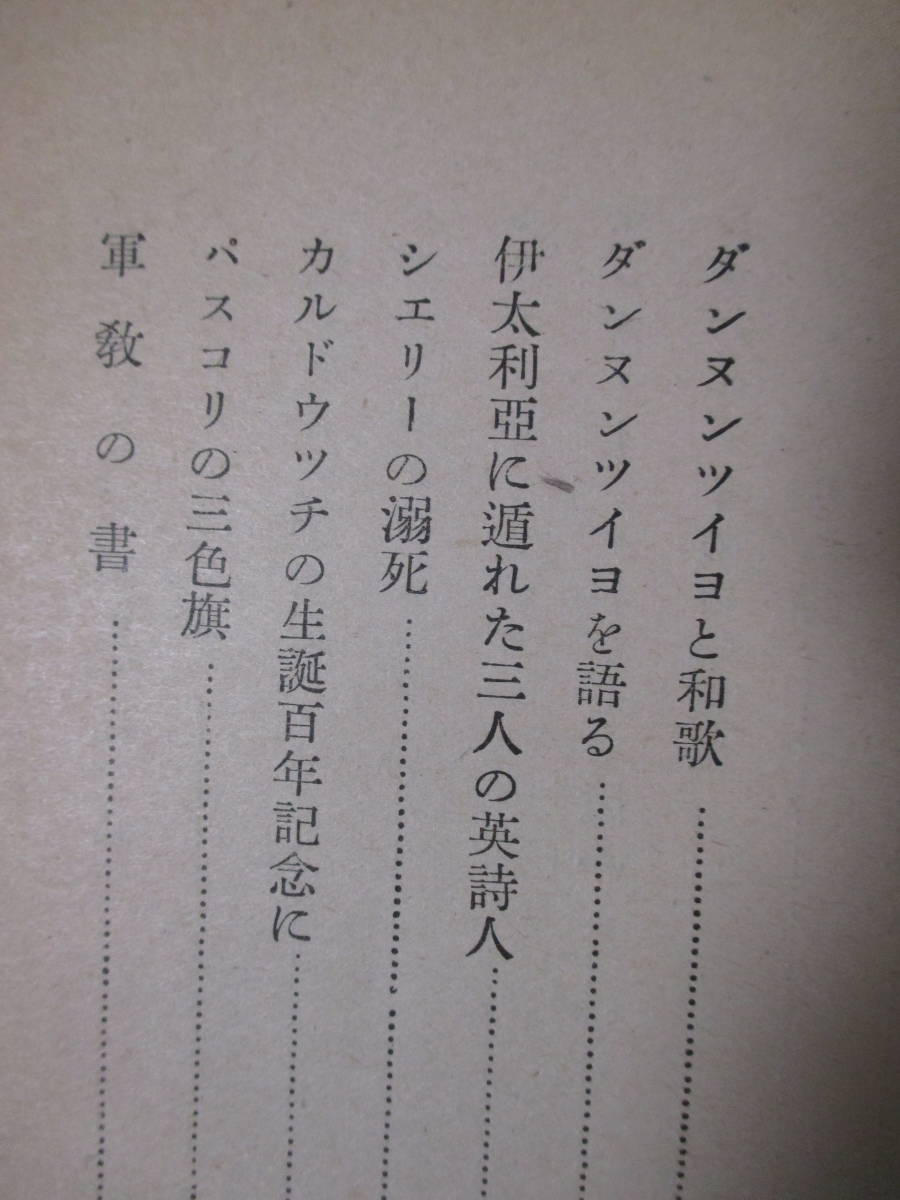 ダンヌンツイヨと和歌…………
ダンヌンツイヨを語る…………
伊太利亞に遁れた三人の英詩人…………
シエリーの溺死…………
カルドウツチの生誕百年記念に…………
パスコリの三色旗…………
軍教の書…………